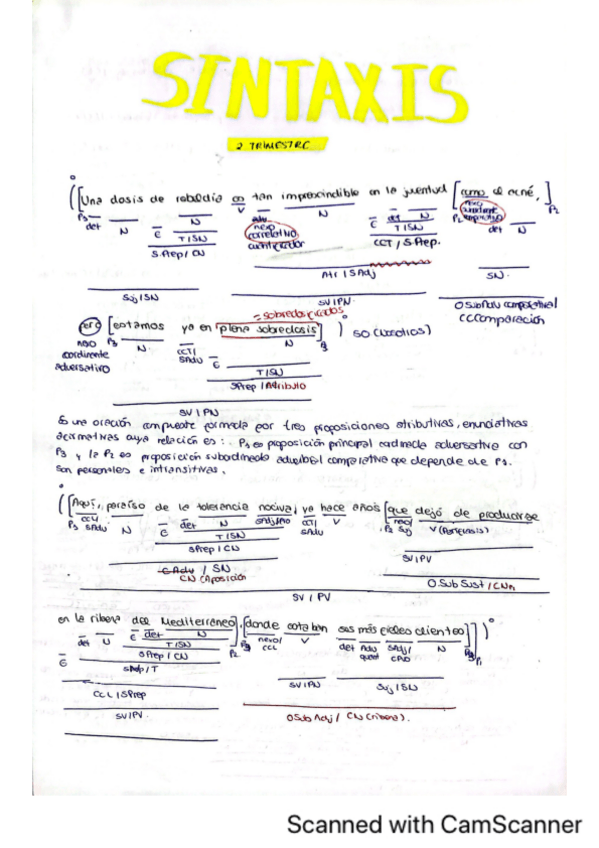 SINTAXIS
2 TRIMESTRE
([Una dosis de rebeldía es tan imprescindible en la juventud [como el acné,]
P1 det N E N V adv N E det N nexo P2 det N P2
T/SN nexo correlativo T/SN
S.Prep/CN cuantificador CCT/S.Prep.
Atr/SAdj SN
Suj/SN SV/PN O Sub Adv comparativa/
= sobredosificados CC Comparación
pero [estamos ya en plena sobredosis]) SO (nosotros)
nexo P3 N CCT/ E N P3
coordinante SAdv T/SN
adversativo SPrep/Atributo
SV/PN
Es una oración compuesta formada por tres proposiciones atributivas, enunciativas
afirmativas cuya relación es: P1 es proposición principal coordinada adversativa con
P3 y la P2 es proposición subordinada adverbial comparativa que depende de P1.
Son personales e intransitivas.
([Aquí, paraíso de la tolerancia nociva, ya hace años [que dejó de producirse
P1 CCL/ N E det N SAdj/ CCT/ V nexo/ V (Perífrasis)
SAdv T/SN SAdv P2 Suj
SPrep/CN SV/PV
CAdv / SN O Sub Sust /
CN (Aposición
SV / PV
en la ribera del Mediterráneo], [donde estaban sus más fieles clientes]])
E det N E det N P2 P3 nexo/ V det Adv SAdj/ N P3 P1
T/SN CCL
SPrep/CN
CCL/SPrep SV/PN Suj/SN
SV/PV O Sub Adj / CN (ribera).
Scanned with CamScanner